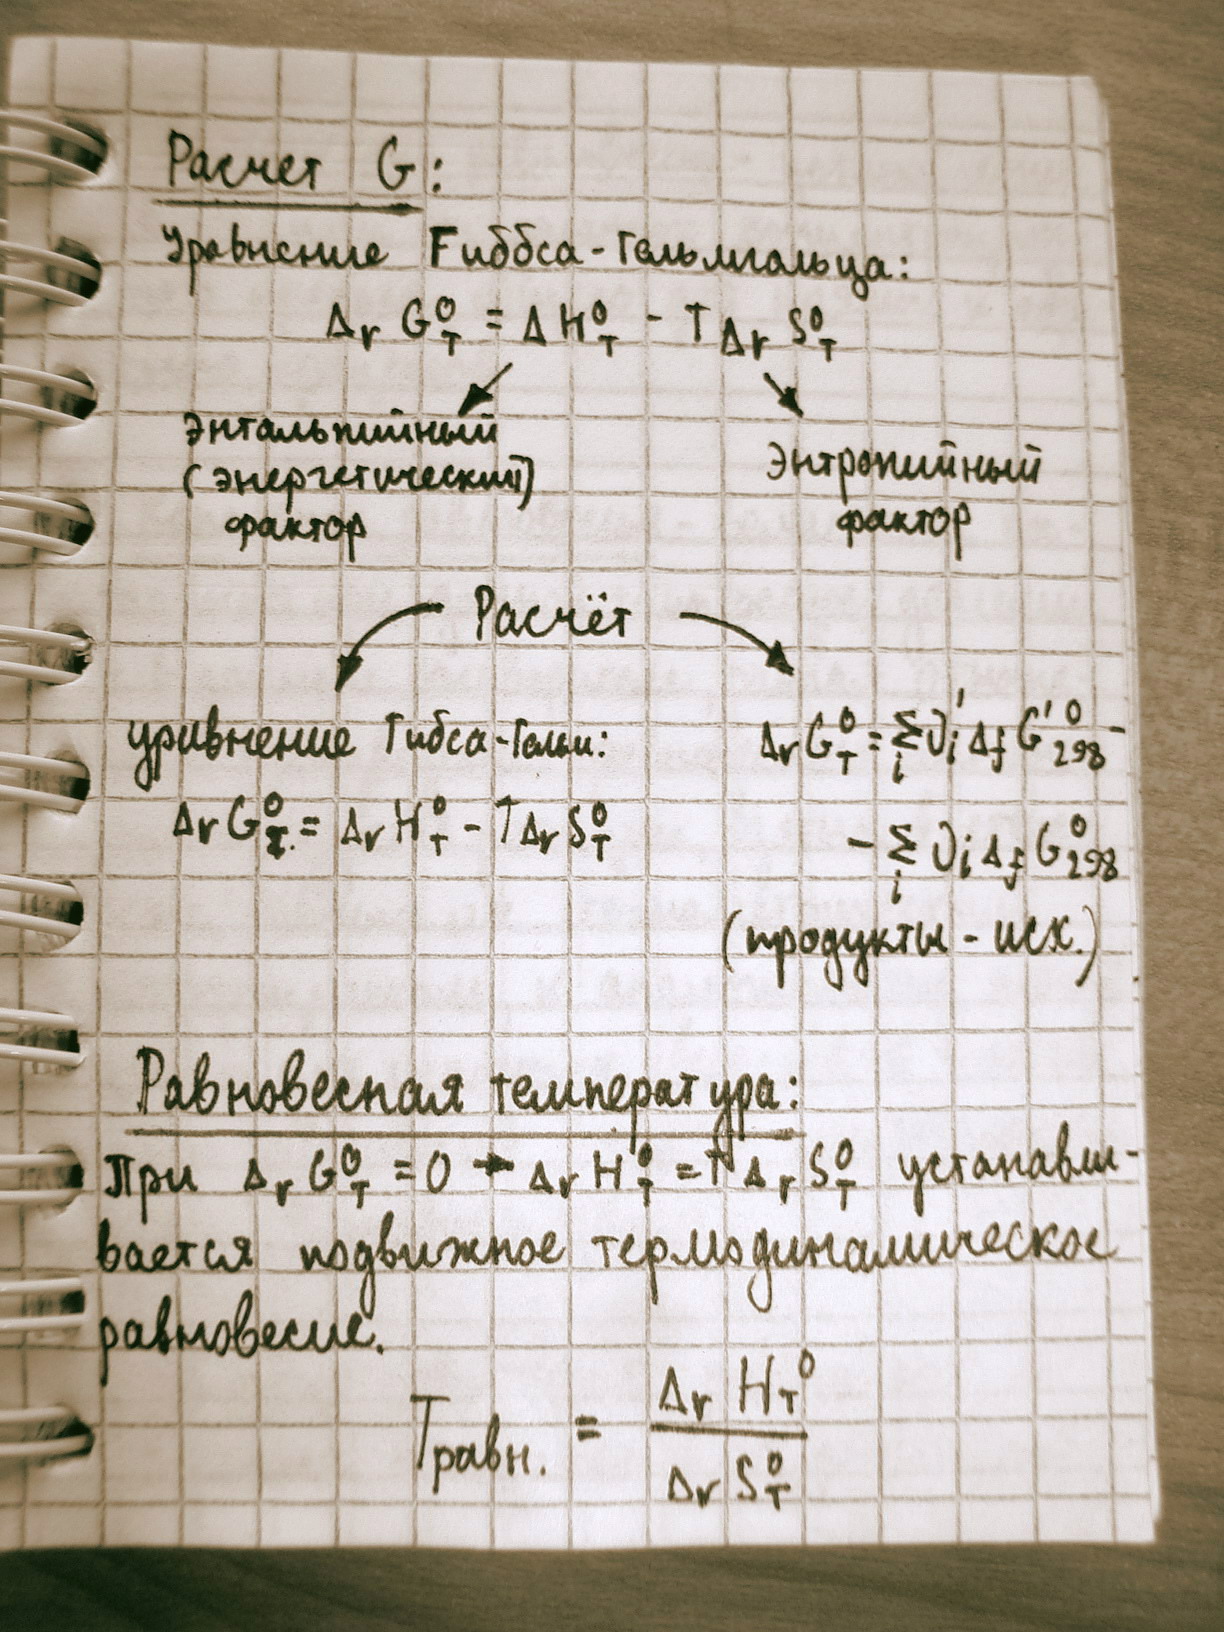 Расчет G:
Уравнение Гиббса-Гельмгольца:
Δr G⁰_T = Δ H⁰_T - T Δr S⁰_T
Энтальпийный
(энергетический)
фактор
Энтропийный
фактор
Расчёт
уривнение Гибса-Гельм:
Δr G⁰_T = Δr H⁰_T - T Δr S⁰_T
Δr G⁰_T = Σ_i ν'_i Δf G'⁰_298 -
- Σ_i ν_i Δf G⁰_298
(продукты - исх.)
Равновесная температура:
При Δr G⁰_T = 0 → Δr H⁰_T = T Δr S⁰_T устанавли-
вается подвижное термодинамическое
равновесие.
T равн. = Δr H_T⁰ / Δr S⁰_T